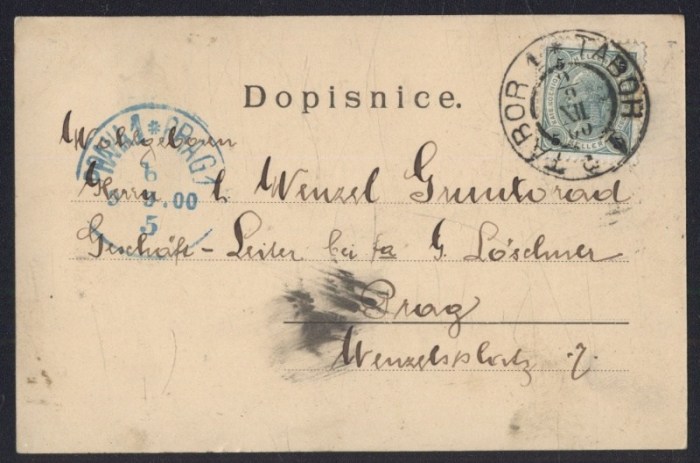 Dopisnice.
TÁBOR 1 * TABOR
PRAHA 1 * PRAG 1
6
9.00
5
Wohlgeboren
Herrn h. Wenzel
Geschäft-Leiter bei fa G. Löschner
Prag
Wenzelsplatz 7.